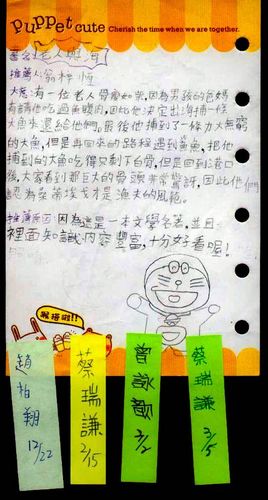 Puppet cute Cherish the time when we are together.
書名:老人與海
推薦人:翁梓
大意:有一位老人骨瘦如柴,因為男孩的爸媽
有請他吃過魚腥肉,因此他決定出海捕一條
大魚來還給他們,最後他捕到了一條力大無窮
的大魚,但是再回來的路程遇到鯊魚,把他
捕到的大魚吃得只剩下白骨,但是回到港口
後,大家看到那巨大的骨頭非常驚訝,因此他們
認為桑蒂埃戈才是漁夫的風範。
推薦原因:因為這是一本文學名著,並且
裡面知識內容豐富,十分好看喔!
趙柏翔 12/22
蔡瑞謙 2/15
曾詠歆 3/2
蔡瑞謙 3/5